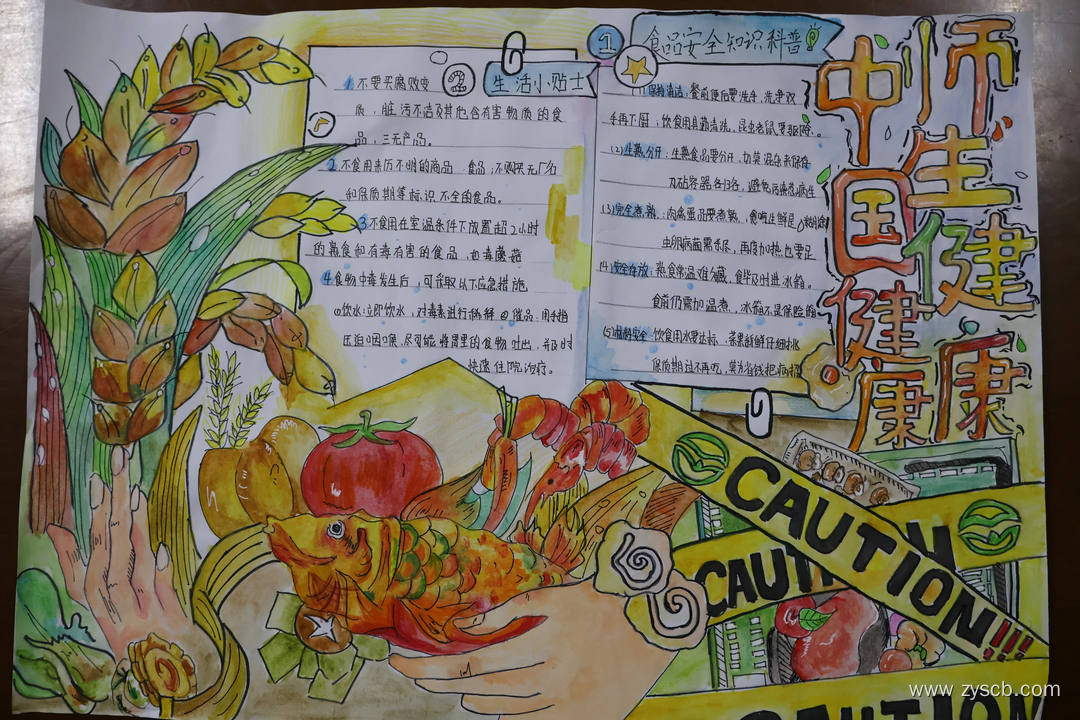 师生健康
中国健康
1
食品安全知识科普
(1)保持清洁：餐前便后要洗手，洗净双
手再下厨，饮食用具勤清洗，昆虫老鼠要驱除。
(2)生熟分开：生熟食品要分开，切莫混杂来保存
刀砧容器各归各，避免污染惹病生
(3)完全煮熟：肉禽蛋品要煮熟，
虫卵病菌需杀尽，再度加热也要足
(4)安全存放：熟食常温难久藏，食毕及时进冰箱。
食前仍需加温煮，冰箱不是保险箱
饮食用水要达标，菜果新鲜仔细挑
保质期过不再吃，莫为省钱把病招
2
生活小贴士
1.不要买腐败变
质，脏污不洁及其他含有害物质的食
品，三无产品。
2.不食用来历不明的商品 食品；不购买无厂名
和保质期等标识不全的食品。
3.不食用在室温条件下放置超2小时
的熟食和有毒有害的食品，
4.食物中毒发生后，可采取以下应急措施
①饮水：立即饮水，对毒素进行稀释②催吐：用手指
压迫 咽喉，尽可能将胃里的食物吐出，并及时
快速住院治疗。
CAUTION!!!
CAUTION
CAUTION
www.zyscb.com